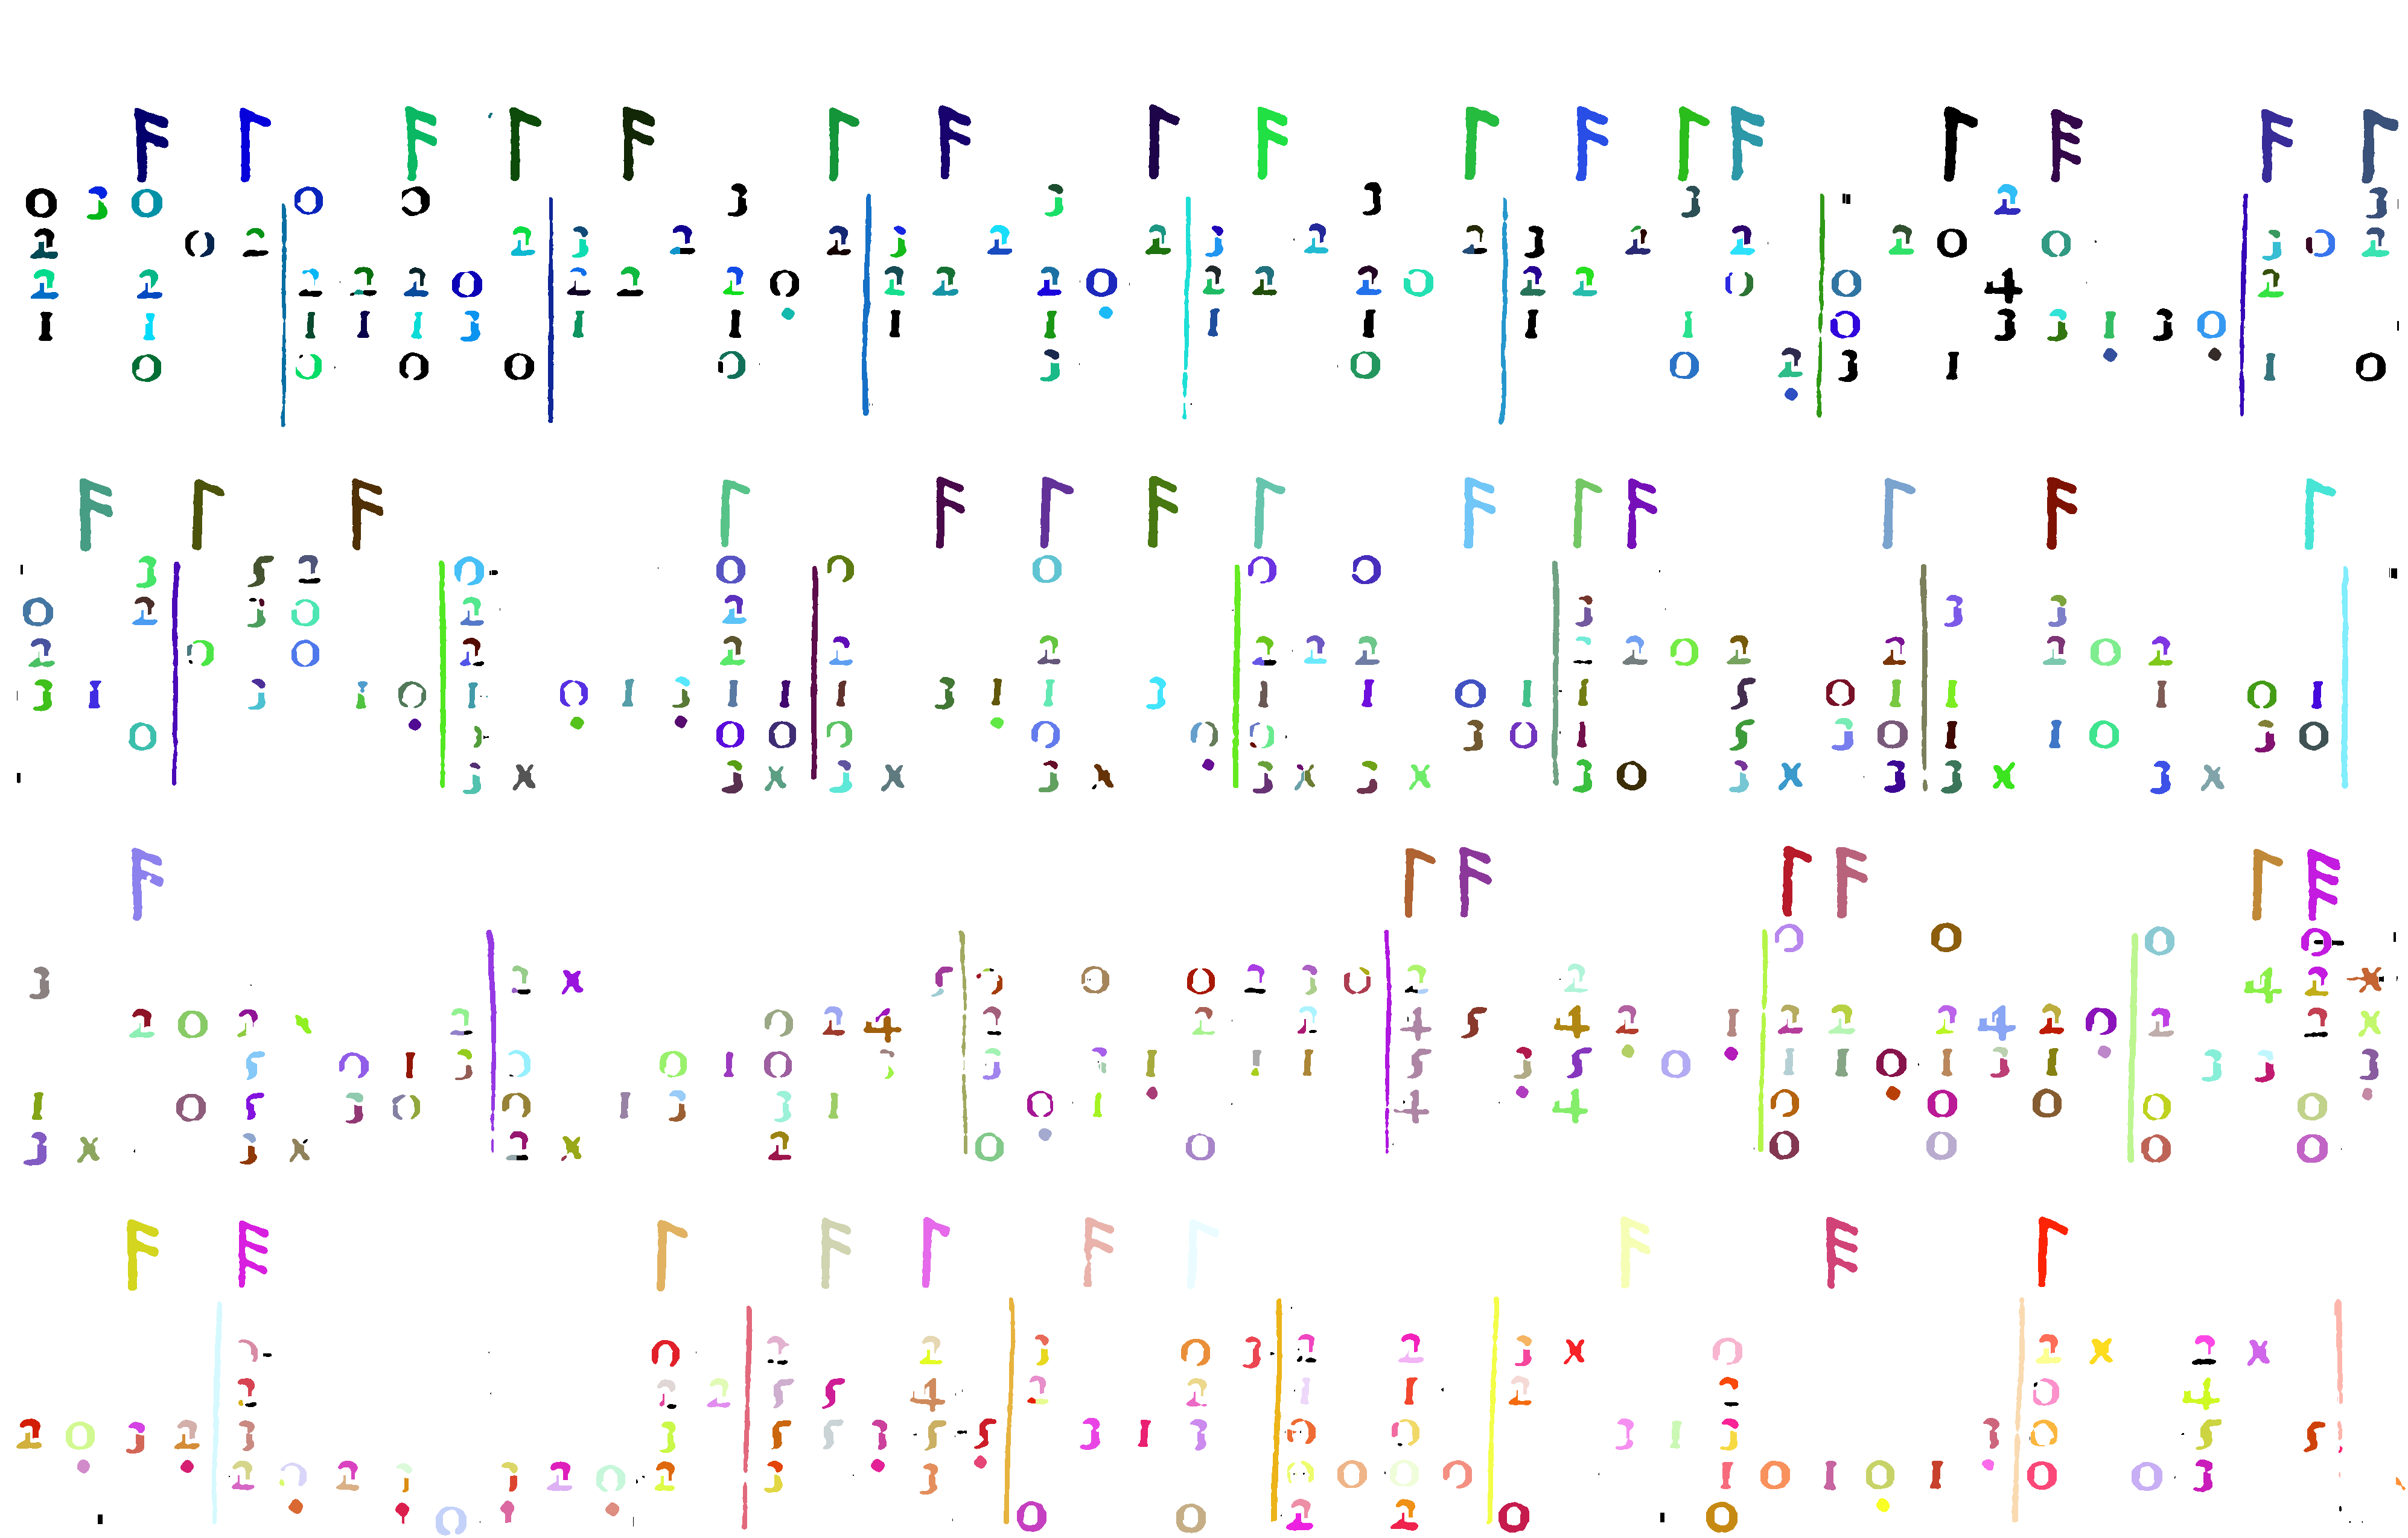 0 3 0 0 0 3 3 3 3 2 3
2 0 2 2 3 2 2 3 2 2 3 2 2 3 2 2 2 0 0 3 0 2
2 2 2 2 2 0 2 2 2 0 2 2 2 0 2 2 2 0 2 2 0 0 4 2
1 1 1 1 1 3 1 1 1 1 1 1 1 1 0 3 3 1 3 0
0 0 0 0 0 3 0 0 2 3 1 1 0
3 5 2 0 0 0 0 0 0
0 2 3 0 2 2 3 3 3
2 0 0 2 2 2 2 2 2 2 2 2 0 2 2 2 0 2
3 1 3 1 0 1 0 1 3 1 1 1 3 1 1 3 1 1 0 1 1 5 0 1 1 1 0 1
0 3 0 0 0 0 0 0 3 0 1 5 3 0 1 1 0 3 0
3 x 3 x 3 x 3 x 3 x 3 x 3 0 3 x 3 3 x 3 x
0 0 0 0
3 2 x 5 0 0 0 2 3 0 2 2 4 2 x
2 0 2 x 2 0 2 4 2 2 2 4 5 4 2 1 2 2 2 4 2 0 2 2 x
5 0 1 3 0 0 1 0 3 3 3 1 1 1 5 3 5 0 1 1 0 1 3 1 3 3 3
1 0 5 3 0 0 1 3 3 1 0 1 4 4 0 0 0 0 0
3 x 3 x 2 x 2 0 0 0 0 0 0
0 0 2 2 3 0 3 2 2 3 x 0 2 x 2 x
2 2 2 5 5 4 2 2 1 1 2 2 0 4
2 0 3 2 3 3 5 5 3 5 5 3 1 3 0 0 3 1 3 3 0 5 5
2 0 2 3 3 2 0 2 3 3 0 0 0 0 1 0 1 0 1 0 0 3
0 0 0 2 2 0 0